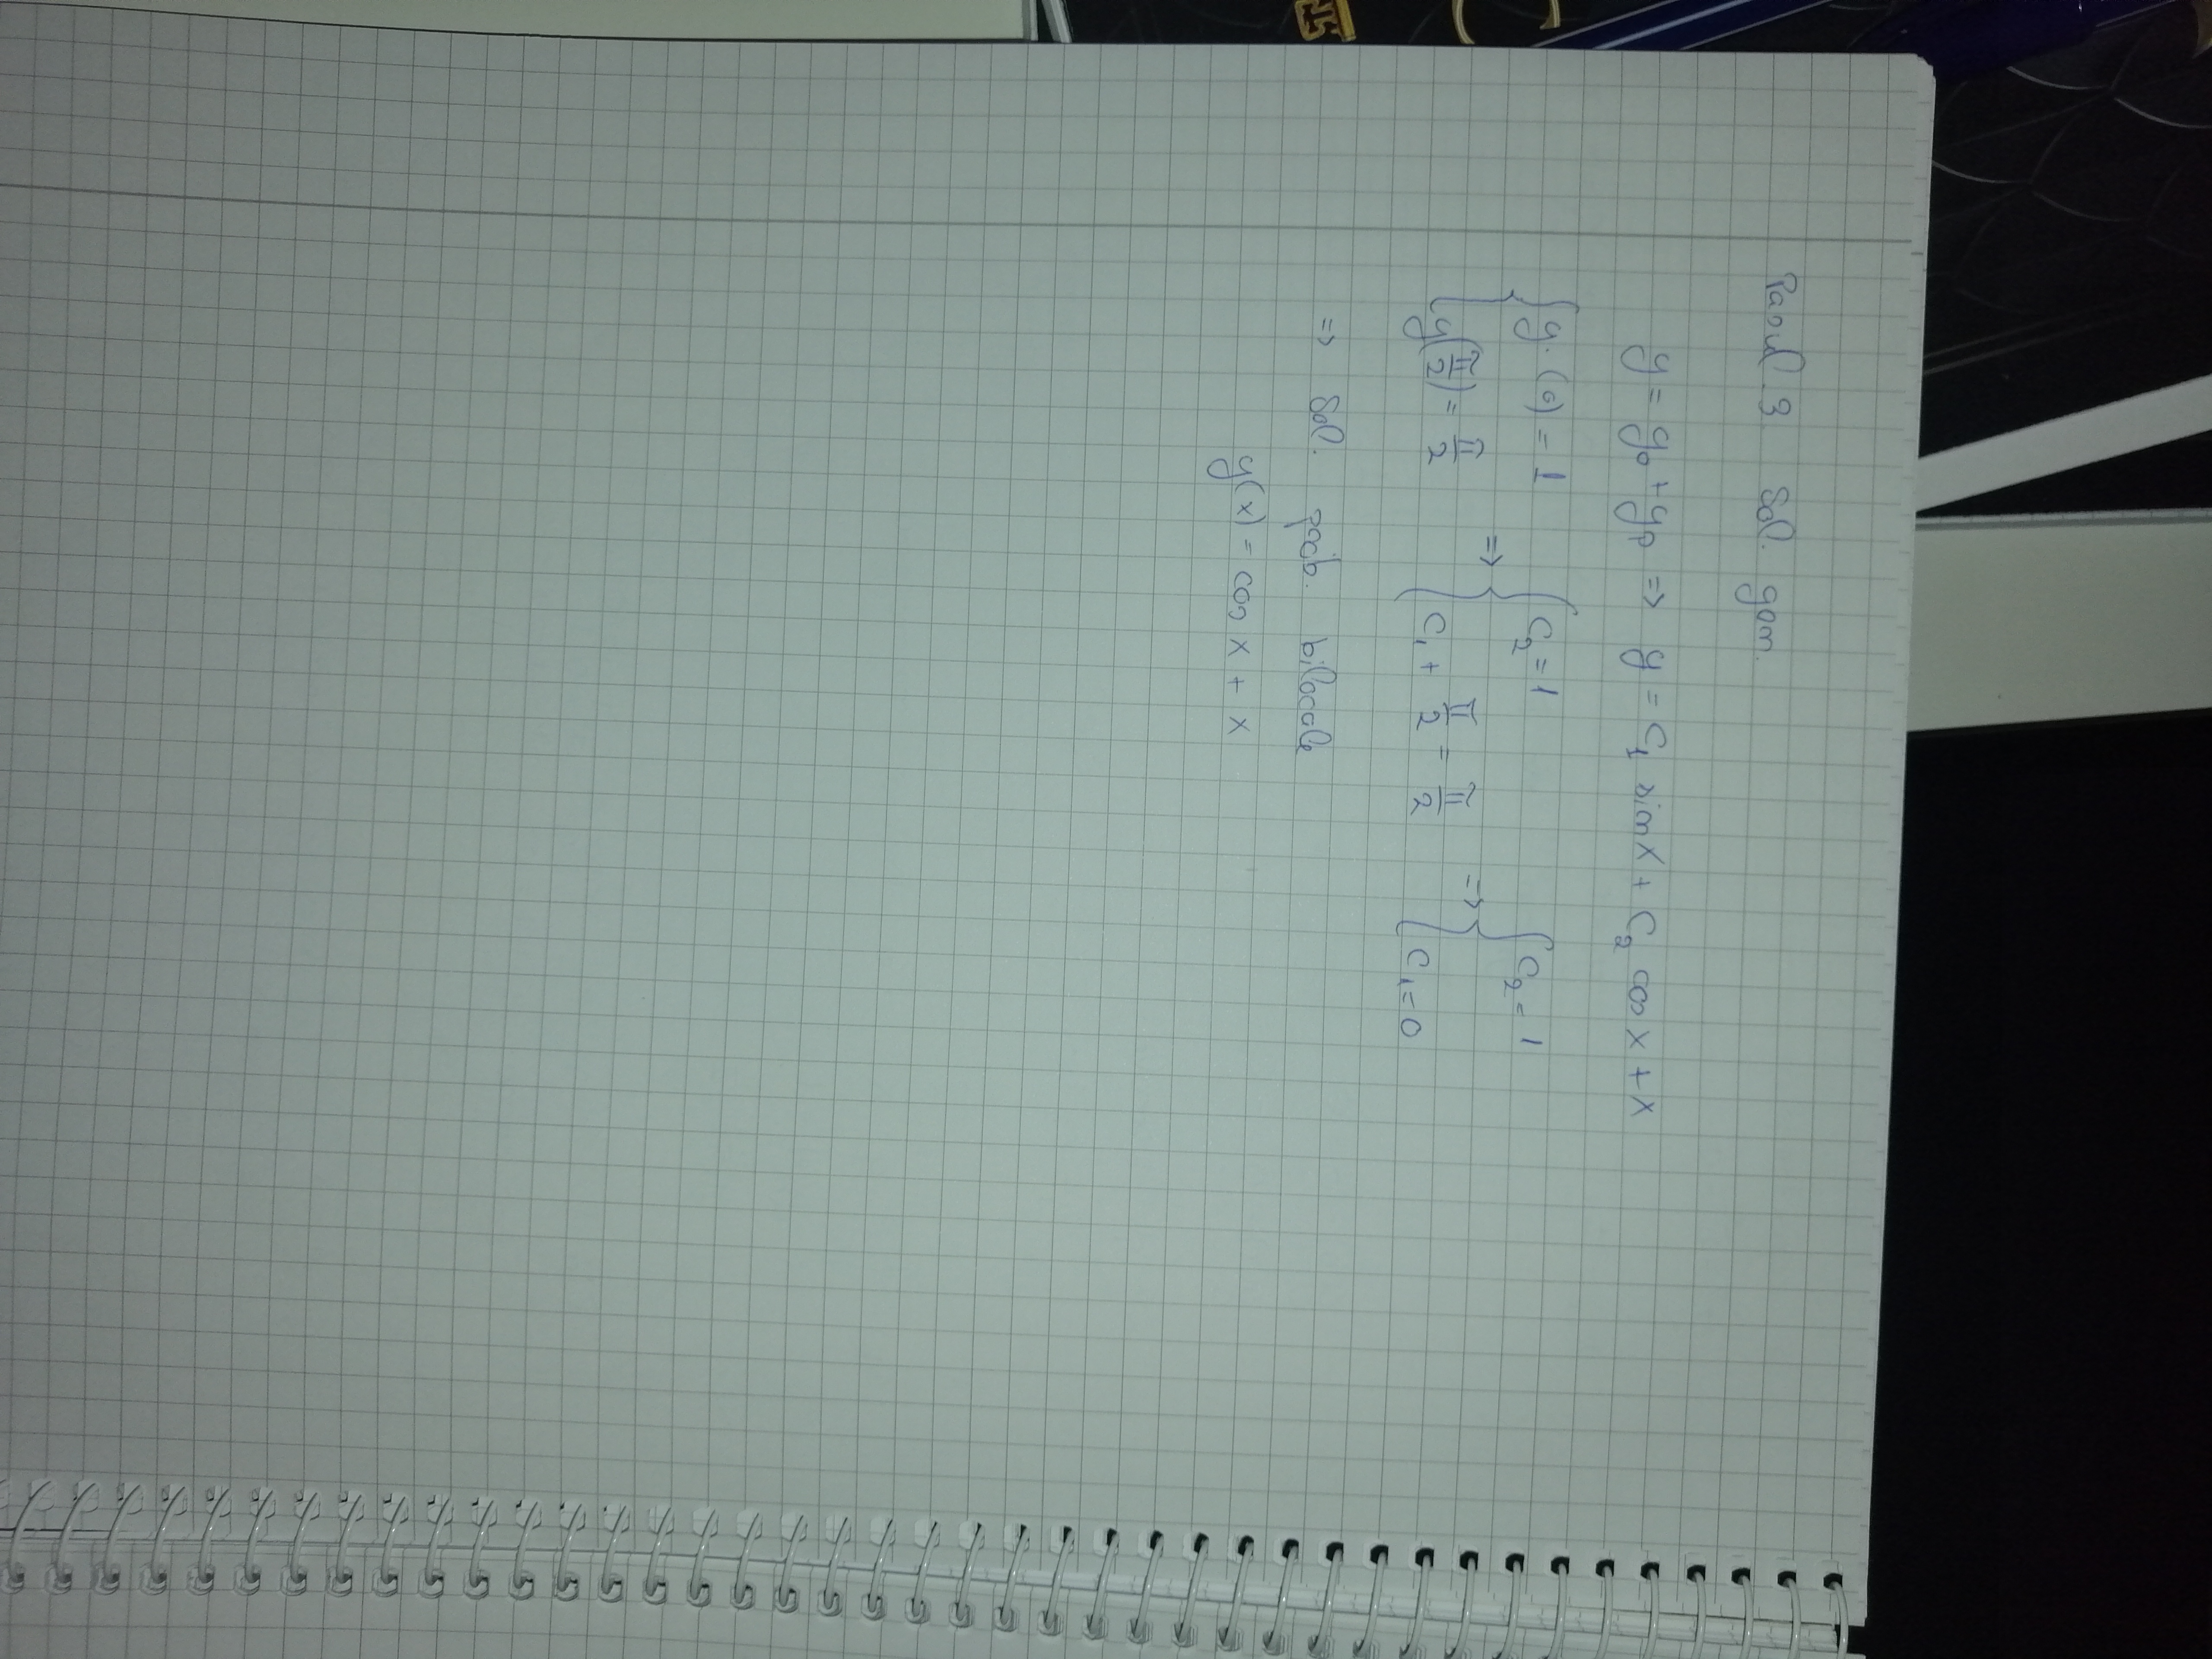 Pasul 3 Sol. gen.
y = y₀ + yp => y = C₁ sin x + C₂ cos x + x
{ y(0) = 1 => { C₂ = 1 => { C₂ = 1
{ y(π/2) = π/2 { C₁ + π/2 = π/2 { C₁ = 0
=> Sol. prob. bilocale
y(x) = cos x + x